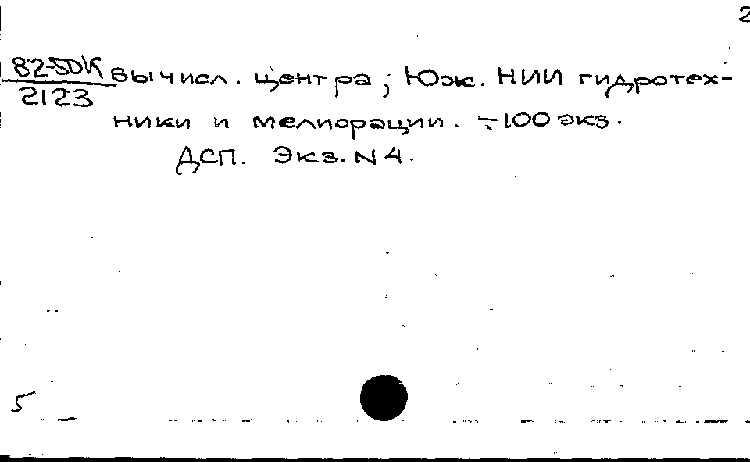 2
82-5DK вычисл. центра; Юж. НИИ гидротех-
2123
ники и мелиорации. - 100 экз.
ДСП. Экз. N 4.
5